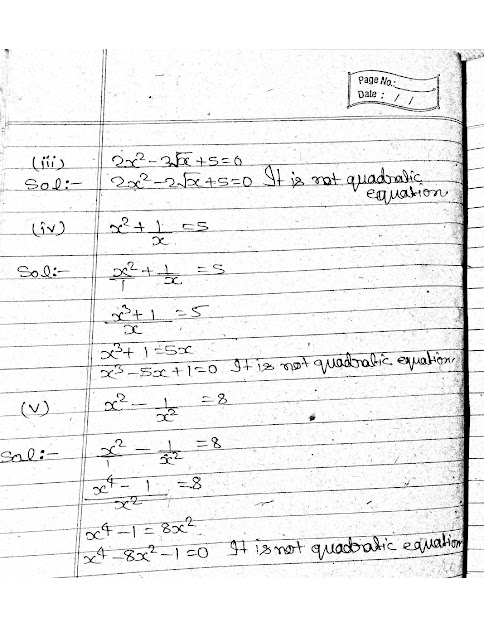 Page No.:
Date : / /
(iii) 2x² - 2√x + 5 = 0
Sol:- 2x² - 2√x + 5 = 0 It is not quadratic
equation
(iv) x² + 1/x = 5
Sol:- x²/1 + 1/x = 5
x³ + 1/x = 5
x³ + 1 = 5x
x³ - 5x + 1 = 0 It is not quadratic equation.
(v) x² - 1/x² = 8
Sol:- x²/1 - 1/x² = 8
x⁴ - 1/x² = 8
x⁴ - 1 = 8x²
x⁴ - 8x² - 1 = 0 It is not quadratic equation